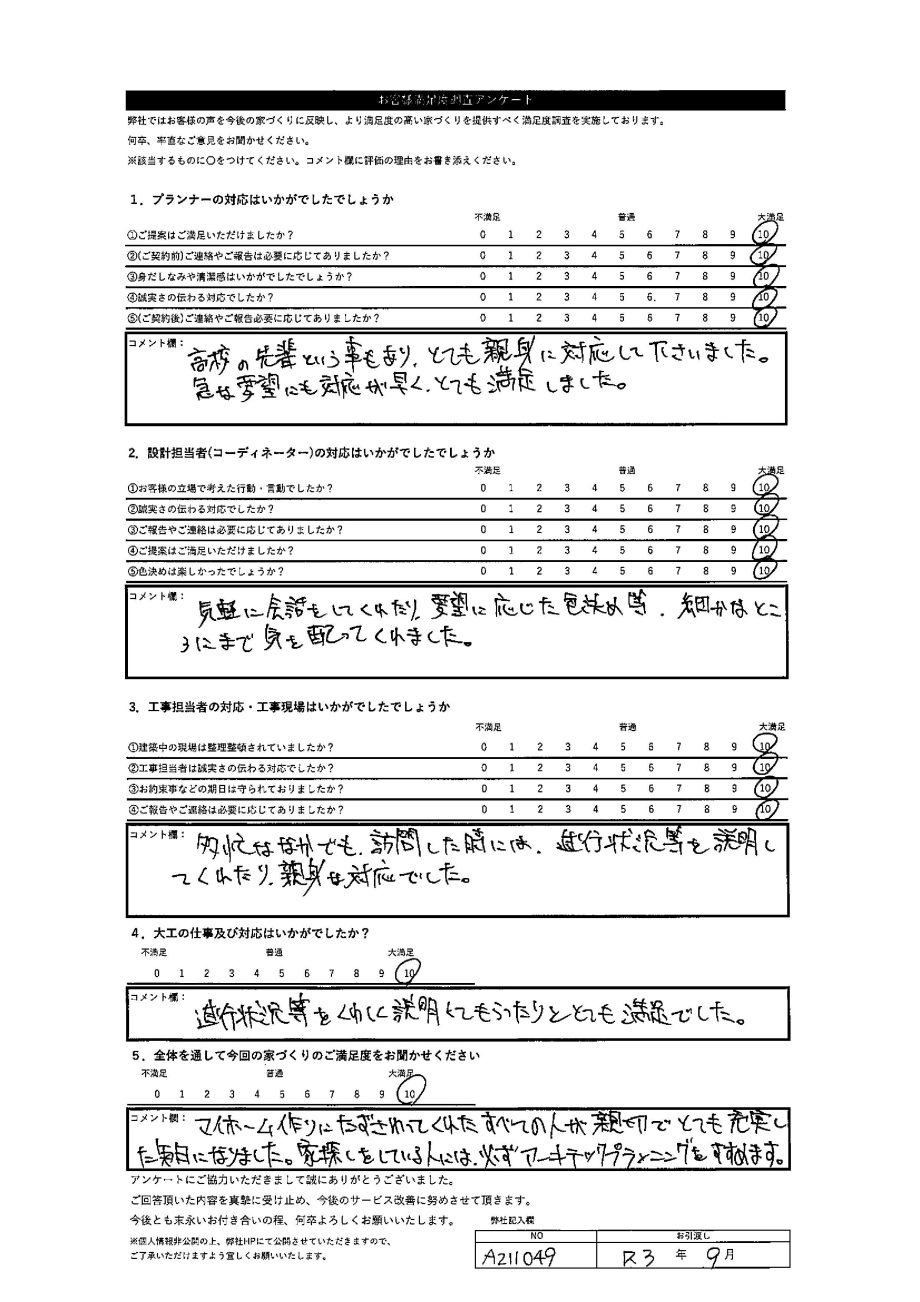 お客様満足度調査アンケート
弊社ではお客様の声を今後の家づくりに反映し、より満足度の高い家づくりを提供すべく満足度調査を実施しております。
何卒、率直なご意見をお聞かせください。
※該当するものに〇をつけてください。コメント欄に評価の理由をお書き添えください。
1．プランナーの対応はいかがでしたでしょうか
不満足 普通 大満足
①ご提案はご満足いただけましたか？ 0 1 2 3 4 5 6 7 8 9 10
②(ご契約前)ご連絡やご報告は必要に応じてありましたか？ 0 1 2 3 4 5 6 7 8 9 10
③身だしなみや清潔感はいかがでしたでしょうか？ 0 1 2 3 4 5 6 7 8 9 10
④誠実さの伝わる対応でしたか？ 0 1 2 3 4 5 6 7 8 9 10
⑤(ご契約後)ご連絡やご報告必要に応じてありましたか？ 0 1 2 3 4 5 6 7 8 9 10
コメント欄：
高校の先輩という事もあり、とても親身に対応して下さいました。
急な要望にも対応が早く、とても満足しました。
2．設計担当者(コーディネーター)の対応はいかがでしたでしょうか
不満足 普通 大満足
①お客様の立場で考えた行動・言動でしたか？ 0 1 2 3 4 5 6 7 8 9 10
②誠実さの伝わる対応でしたか？ 0 1 2 3 4 5 6 7 8 9 10
③ご報告やご連絡は必要に応じてありましたか？ 0 1 2 3 4 5 6 7 8 9 10
④ご提案はご満足いただけましたか？ 0 1 2 3 4 5 6 7 8 9 10
⑤色決めは楽しかったでしょうか？ 0 1 2 3 4 5 6 7 8 9 10
コメント欄：
気軽に会話をしてくれたり、要望に応じた色決め等、細かなとこ
ろにまで気を配ってくれました。
3．工事担当者の対応・工事現場はいかがでしたでしょうか
不満足 普通 大満足
①建築中の現場は整理整頓されていましたか？ 0 1 2 3 4 5 6 7 8 9 10
②工事担当者は誠実さの伝わる対応でしたか？ 0 1 2 3 4 5 6 7 8 9 10
③お約束事などの期日は守られておりましたか？ 0 1 2 3 4 5 6 7 8 9 10
④ご報告やご連絡は必要に応じてありましたか？ 0 1 2 3 4 5 6 7 8 9 10
コメント欄：
多忙ななかでも、訪問した時には、進行状況等を説明し
てくれたり、親身な対応でした。
4．大工の仕事及び対応はいかがでしたか？
不満足 普通 大満足
0 1 2 3 4 5 6 7 8 9 10
コメント欄：
進行状況等をくわしく説明してもらったりととても満足でした。
5．全体を通して今回の家づくりのご満足度をお聞かせください
不満足 普通 大満足
0 1 2 3 4 5 6 7 8 9 10
コメント欄：
マイホーム作りにたずさわってくれたすべての人が親切でとても充実し
た毎日になりました。家探しをしている人には、必ずアーキテックプランニングをすすめます。
アンケートにご協力いただきまして誠にありがとうございました。
ご回答頂いた内容を真摯に受け止め、今後のサービス改善に努めさせて頂きます。
今後とも末永いお付き合いの程、何卒よろしくお願いいたします。
弊社記入欄
※個人情報非公開の上、弊社HPにて公開させていただきますので、
ご了承いただけますよう宜しくお願いいたします。
NO お引渡し
A211049 R3 年 9月